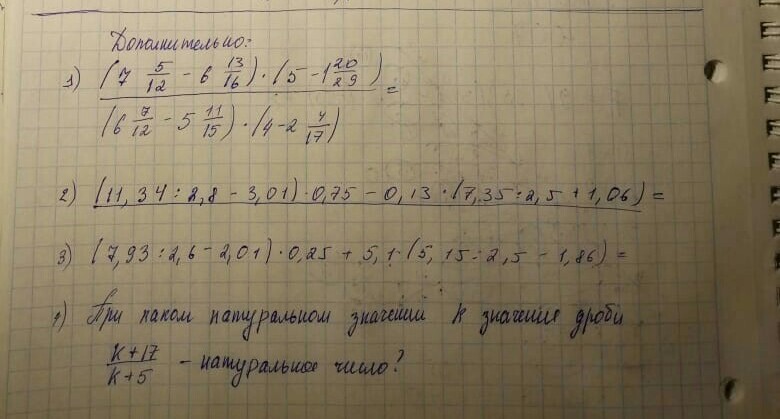 Дополнительно:
1) (7 5/12 - 6 13/16) · (5 - 1 20/29) =
(6 7/12 - 5 11/15) · (4 - 2 4/17)
2) (11,34 : 2,8 - 3,01) · 0,75 - 0,13 · (7,35 : 2,5 + 1,06) =
3) (7,93 : 2,6 - 2,01) · 0,25 + 5,1 · (5,15 : 2,5 - 1,86) =
4) При каком натуральном значений k значение дроби
k+17/k+5 - натуральное число?